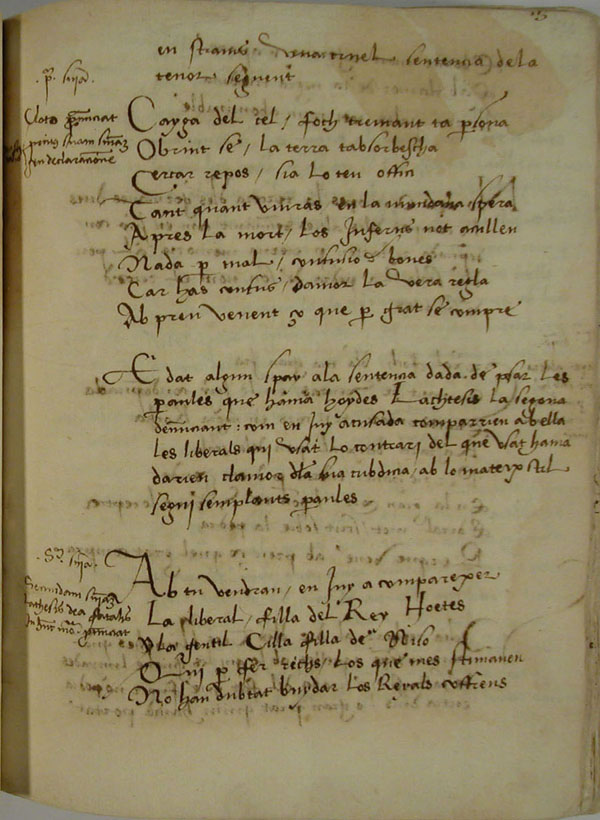 en strams duna cruel sentencia de la
tenor seguent
.pª. snīa.
Cloto p̄nunciat
primo suam snīaz
in declaratione
Cayga del cel / foch cremant ta p̄sona
Obrint se / la terra tabsorbescha
Cercar repos / sia lo teu offici
Tant quant viuras en la mundana spera
Apres la mort / los Inferns not acullen
Nada p̄ mal / confusio de bones
Car has confus / damor la vera regla
Ab preu venent ço que p̄ grat se compre
E dat algun spay a la sentencia dada de p̄sar les
paraules que hauia hoydes Lachtesis la segona
denunciant: com en juy acusada comparrien abella
les liberals qui vsat lo contrari del que vsat hauia
darien clamor dla sua cubdicia, ab lo mateix stil
segui semplants paraules
.Sª. snīa.
Secundam snīaz
Lachesis dea fatalis
in hunc mō. p̄nunciat
Ab tu vendran / en juy a comparexer
La liberal / filla del Rey Hoetes
Y la gentil Cilla filla de Niso
Qui p̄ fer richs / los que mes stimauen
No han dubtat buydar los Reyals coffrens